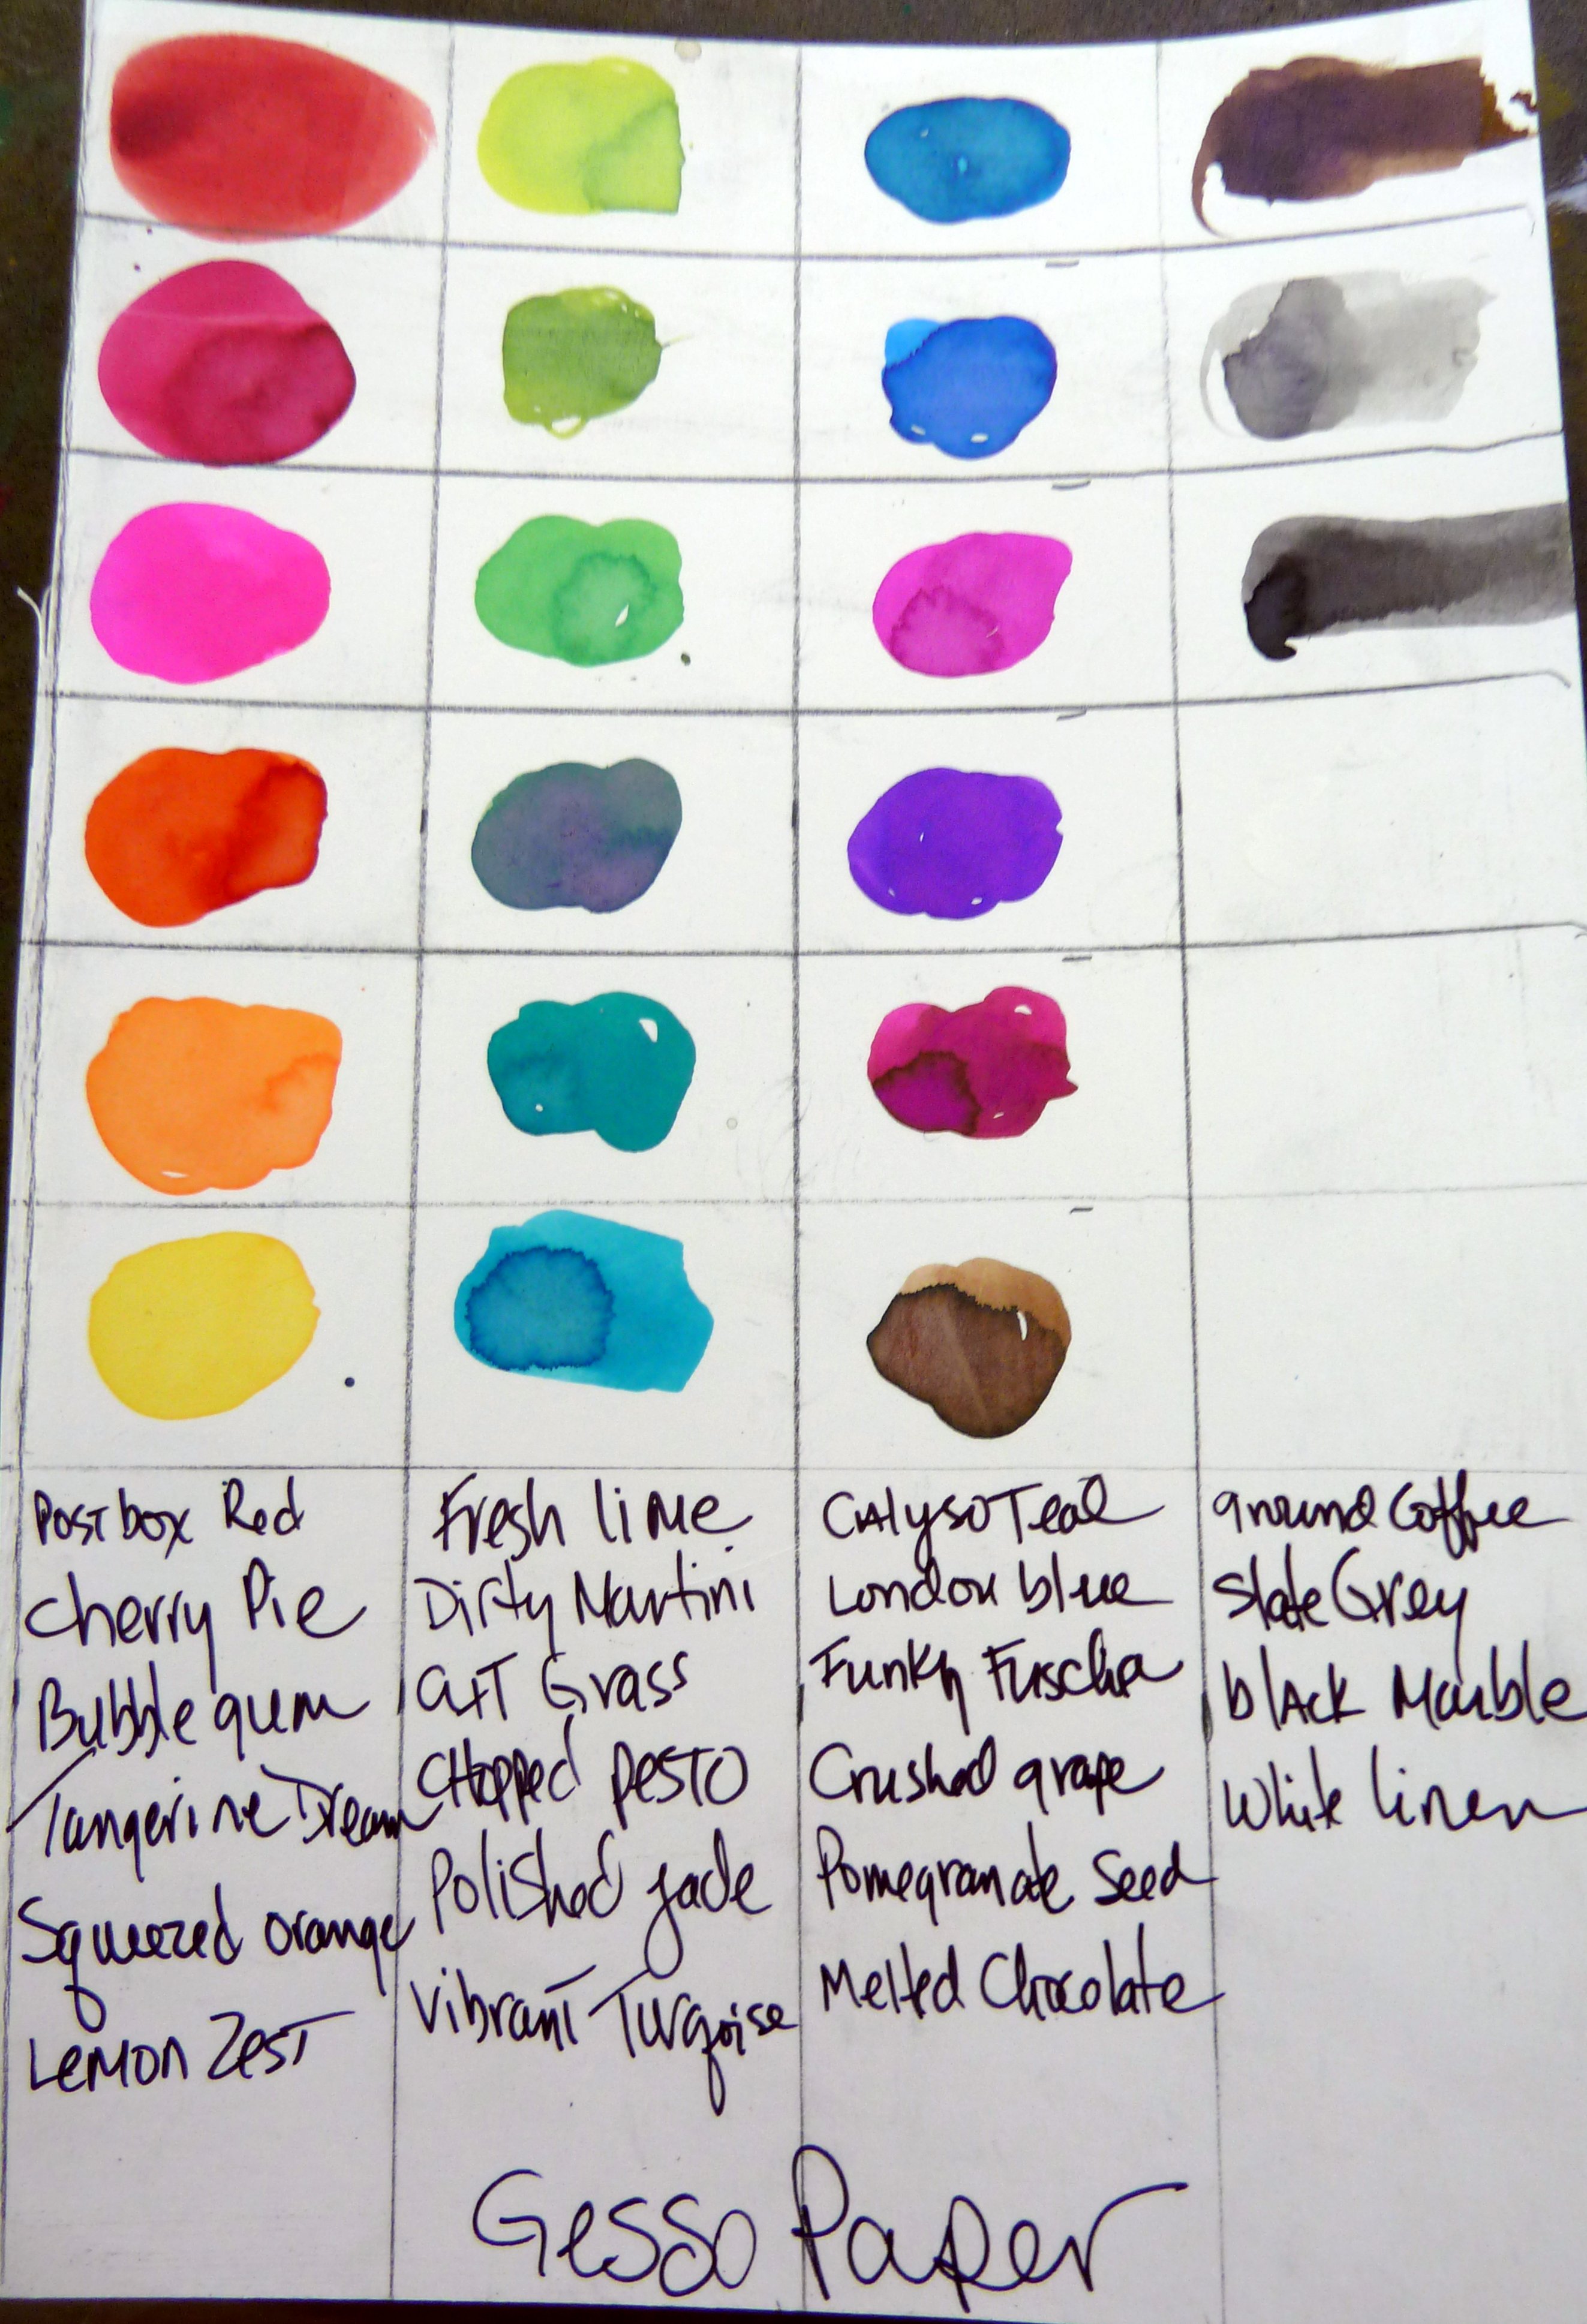 Postbox Red
Cherry Pie
Bubblegum
Tangerine Dream
Squeezed orange
Lemon Zest
Fresh lime
Dirty Martini
CuT Grass
CHopped pesTO
Polished jade
Vibrant Turqoise
CAlyso Teal
London blue
Funky Fuscha
Crushed grape
Pomegranate Seed
Melted Chocolate
ground Coffee
Slate Grey
blAck Marble
White linen
Gesso Paper